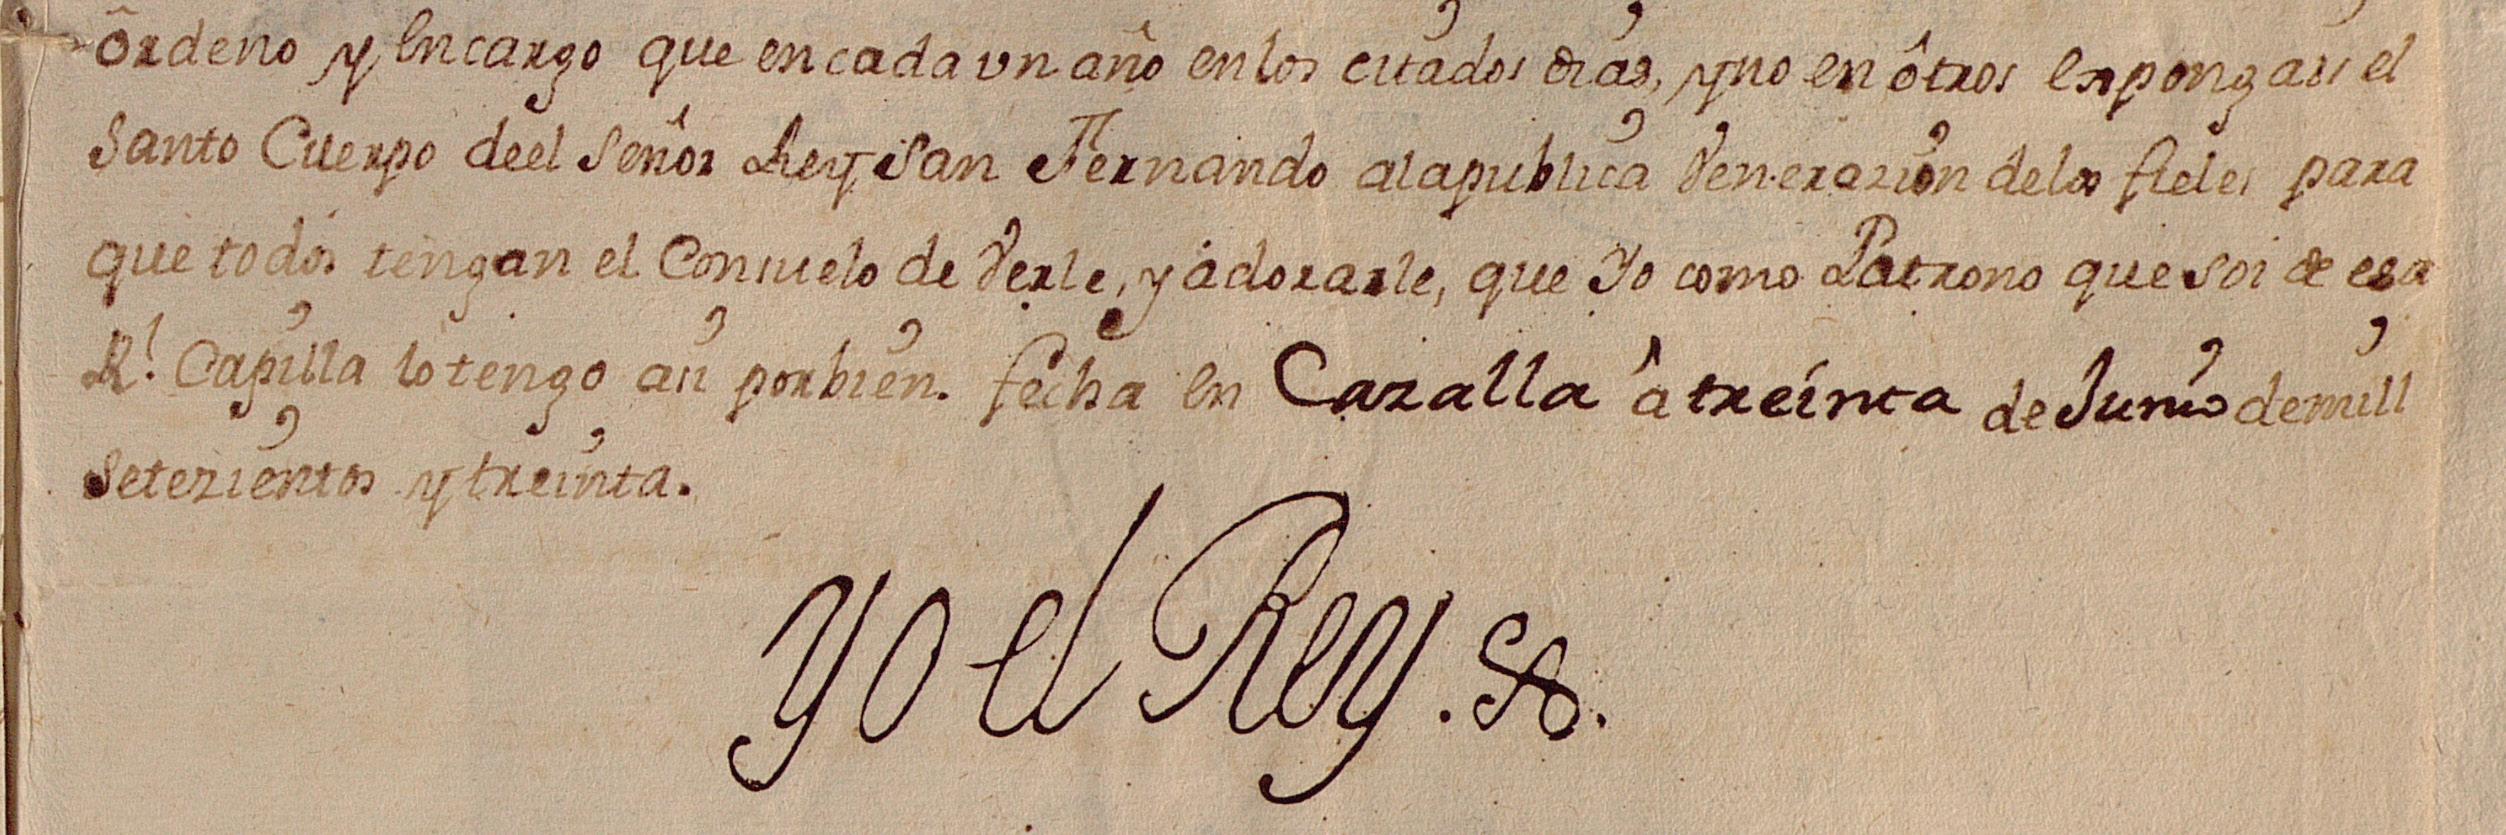 ôrdeno y encargo que en cada vn año en los citados dias, y no en ôtros expongais el
Santo Cuerpo de el Señor Rey San Fernando a la publica Venerazion de los fieles para
que todos tengan el Consuelo de Verle, y adorarle, que Yo como Patrono que soi de esa
Rl. Capilla lo tengo asi por bien. fecha en Cazalla â treinta de Junio de mill
setezientos y treinta.
Yo el Rey.